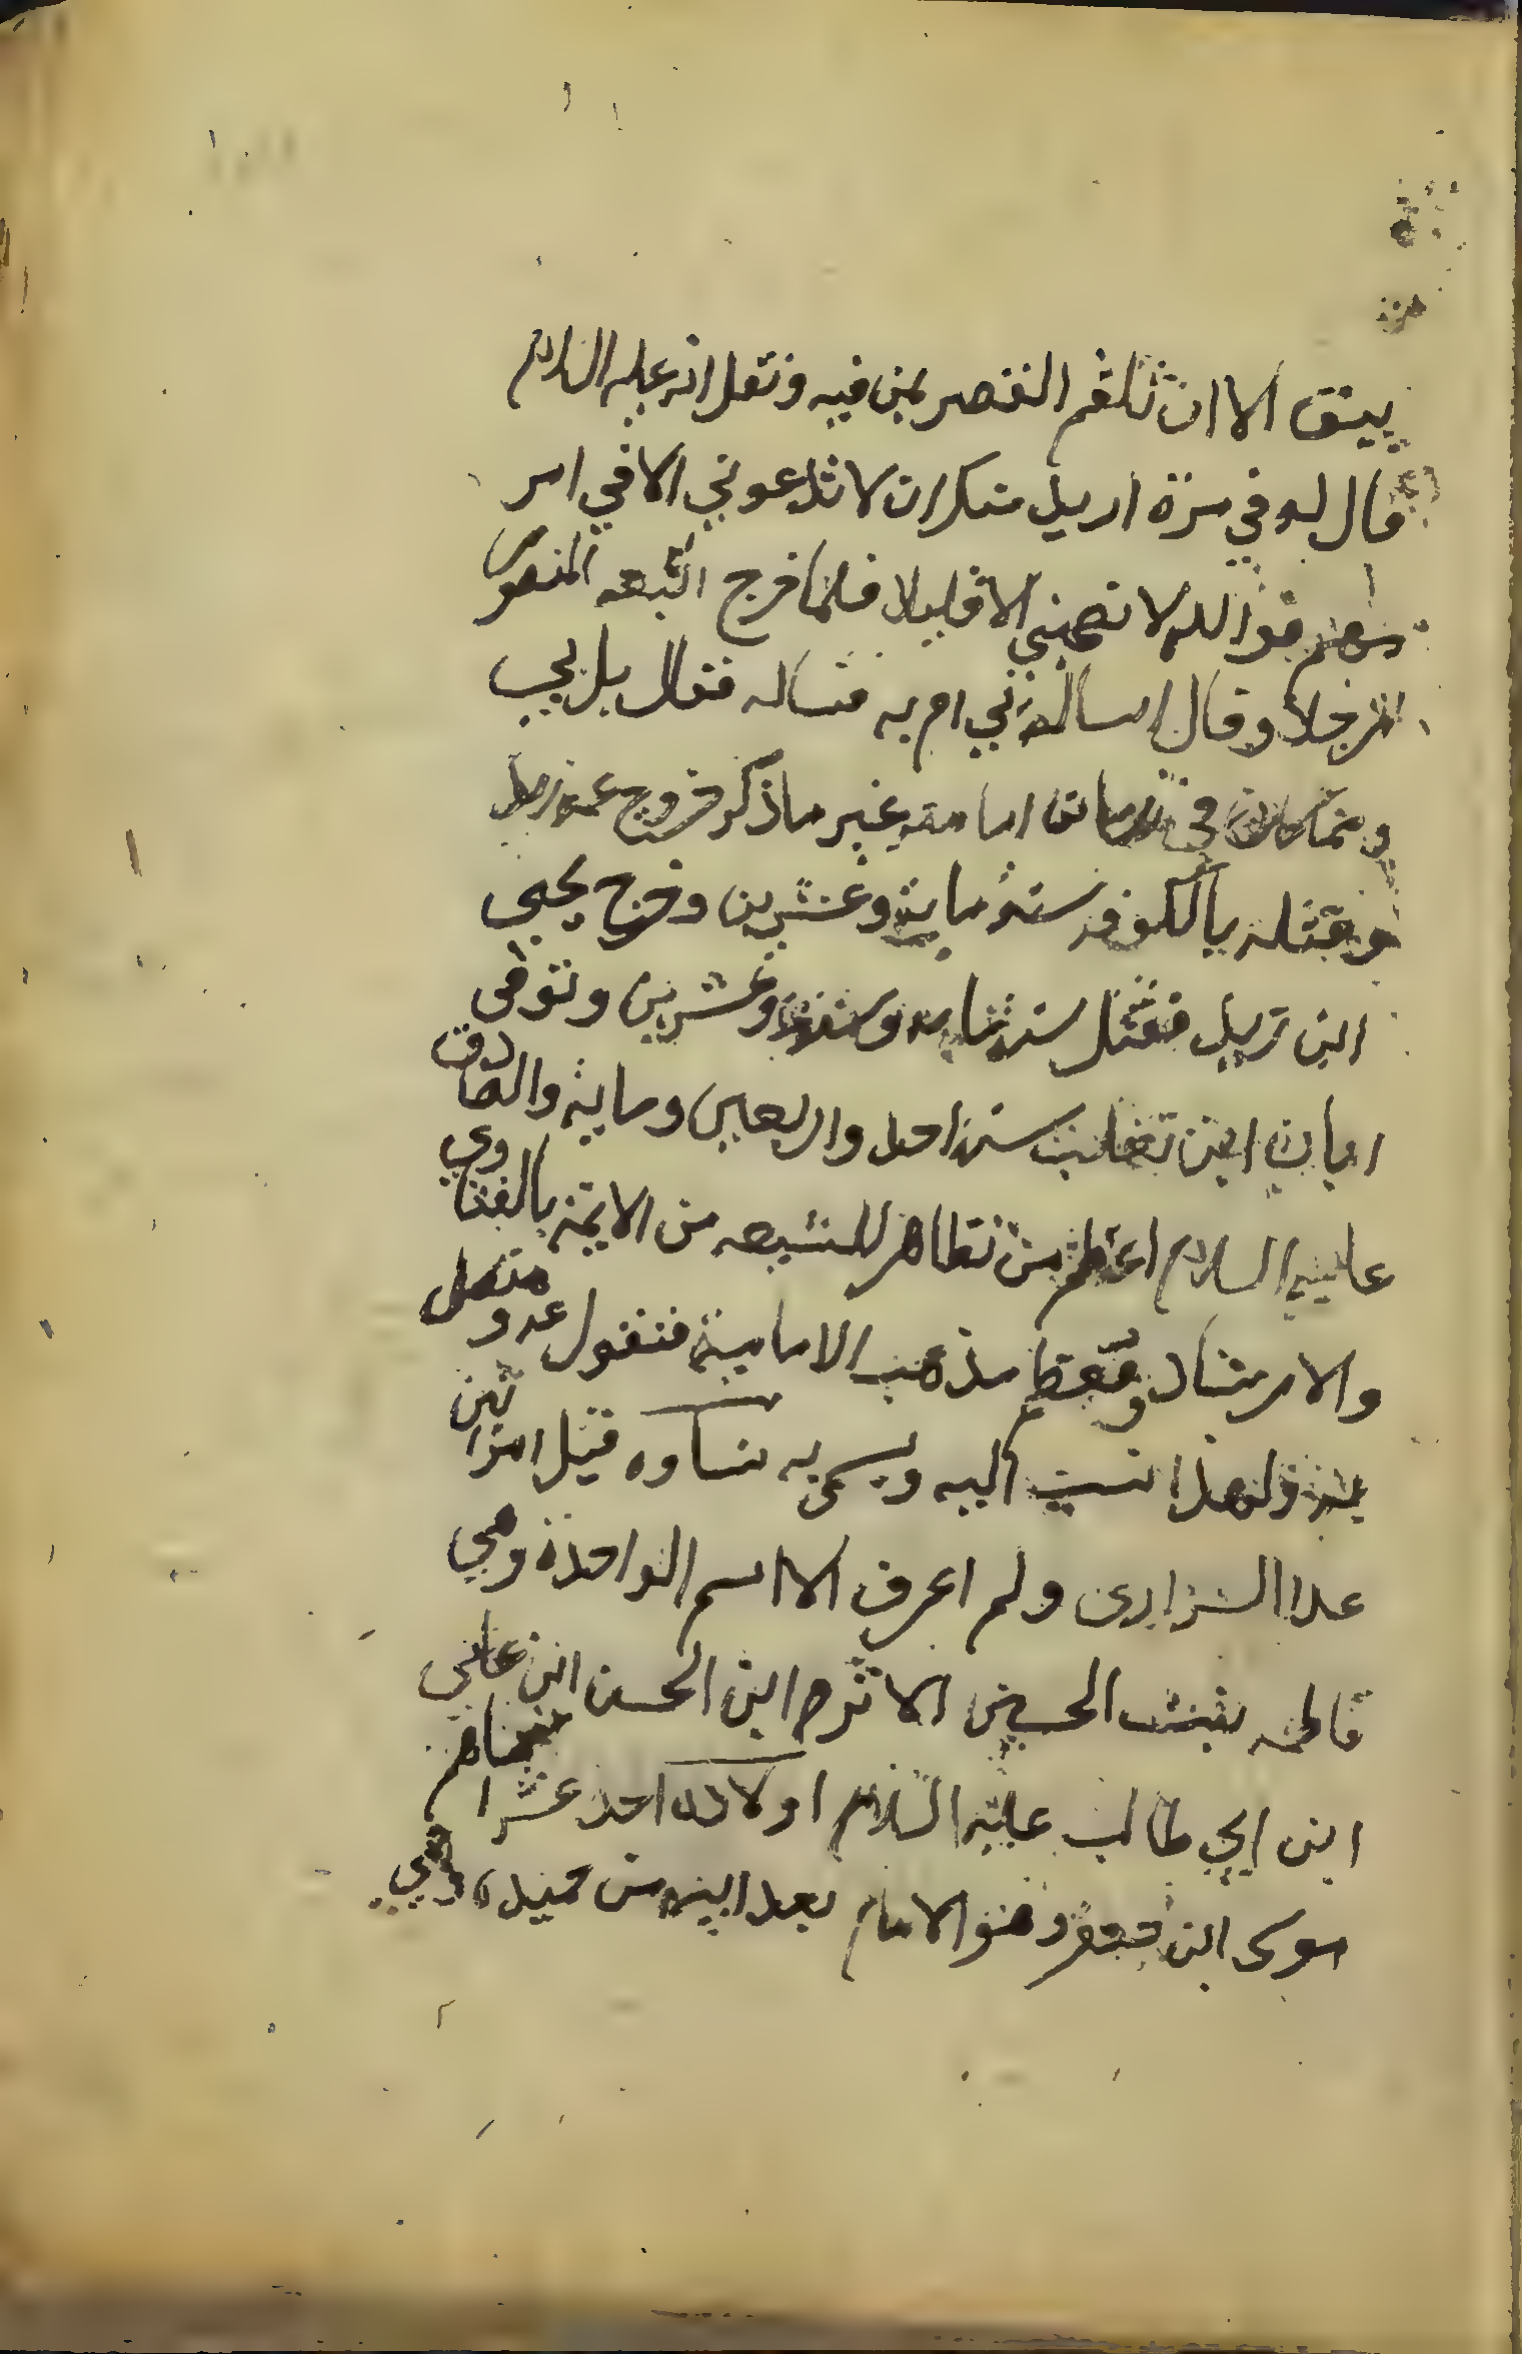 يبق الا ان تلقم القصر بمن فيه ونقل انه عليه السلام
قال له في مرة اريد منك ان لا تدعوني الا في امر
مهم فوالله لا تصحبني الا قليلا فلما خرج اتبعه المنصور
رجلا وقال اساله بي ام به فساله فقال بل بي
ومما كان في زمان امامته غير ما ذكر خروج عمه زيد
وقتله بالكوفه سنة ماية وعشرين وخرج يحيى
ابن زيد فقتل سنة ماية وعشرين وتوفى
ابان ابن تغلب سنة احد واربعين وماية والصادق
عليه السلام اعظم من تظاهر للشيعه من الايمة بالفتاوي
والارشاد ومعظم مذهب الامامية منقول عنه و متصل
به ولهذا نسب اليه ويسمى به نساوه قيل امراتين
عدا السراري ولم اعرف الا اسم الواحدة وهي
فاطمه بنت الحسين الاثرم ابن الحسن ابن علي
ابن ابي طالب عليه السلام اولاده احد عشر
موسى ابن جعفر وهو الامام بعد ابيه من حميده وهي